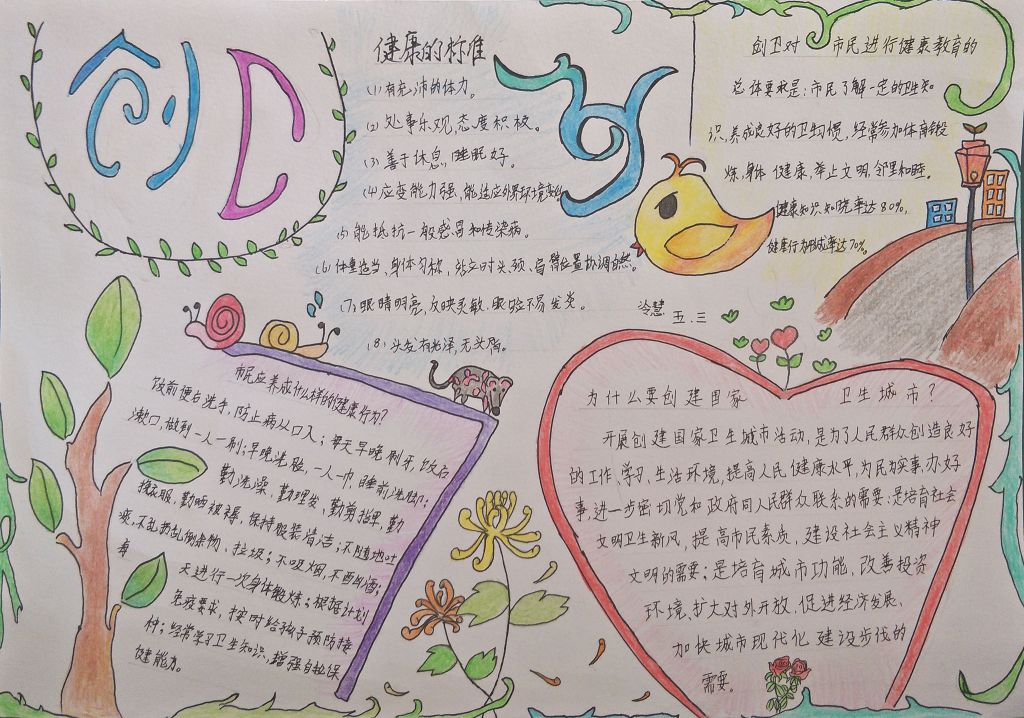 创卫
健康的标准
(1)有充沛的体力。
(2)处事乐观,态度积极。
(3)善于休息,睡眠好。
(4)应变能力强,能适应外界环境变化
(5)能抵抗一般感冒和传染病。
(6)体重适当,身体匀称,站立时头、颈、肩臂位置协调自然。
(7)眼睛明亮,反映灵敏,眼睑不易发炎。
(8)头发有光泽,无头屑。
创卫对 市民进行健康教育的
总体要求是:市民了解一定的卫生知
识,养成良好的卫生习惯,经常参加体育锻
炼,身体健康,举止文明,邻里和睦。
健康知识知晓率达80%,
健康行为形成率达70%。
冷慧 五.三
市民应养成什么样的健康行为?
饭前便后洗手,防止病从口入;每天早晚刷牙,饭后
漱口,做到一人一刷;早晚洗脸,一人一巾,睡前洗脚;
勤洗澡、勤理发、勤剪指甲、勤
换衣服,勤晒被褥,保持服装清洁;不随地吐
痰,不乱扔乱倒杂物、垃圾;不吸烟,不酗酒;
每
天进行一次身体锻炼;根据计划
免疫要求,按时给孩子预防接
种;经常学习卫生知识,增强自我保
健能力。
为什么要创建国家 卫生城市?
开展创建国家卫生城市活动,是为了人民群众创造良好
的工作、学习、生活环境,提高人民健康水平,为民为实事、办好
事,进一步密切党和政府同人民群众联系的需要;是培育社会
文明卫生新风,提高市民素质,建设社会主义精神
文明的需要;是培育城市功能,改善投资
环境、扩大对外开放,促进经济发展、
加快城市现代化建设步伐的
需要。